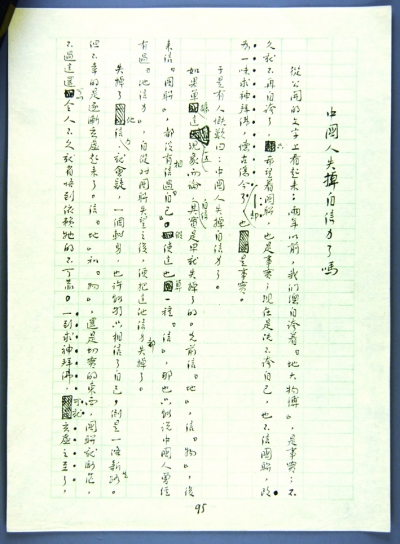 中國人失掉自信力了嗎
從公開的文字上看起來：兩年以前，我們總自誇着“地大物博”，是事實；不
久就不再自誇了，希望着國聯，也是事實；現在是既不誇自己，也不信國聯，改
為一味求神拜佛，懷古傷今了——卻也是事實。
於是有人慨歎曰：中國人失掉自信力了。
如果單據這一點現象而論，自信其實是早就失掉了的。先前信“地”，信“物”，後
來信“國聯”，都沒有相信過“自己”。假使這也算一種“信”，那也只能說中國人曾經
有過“他信力”，自從對國聯失望之後，便把這他信力都失掉了。
失掉了他信力，就會疑，一個轉身，也許能夠只相信了自己，倒是一條新生路，
但不幸的是逐漸玄虛起來了。信“地”和“物”，還是切實的東西，國聯就渺茫，
不過這還可以令人不久就省悟到依賴牠的不可靠。一到求神拜佛，可就玄虛之至了，
95